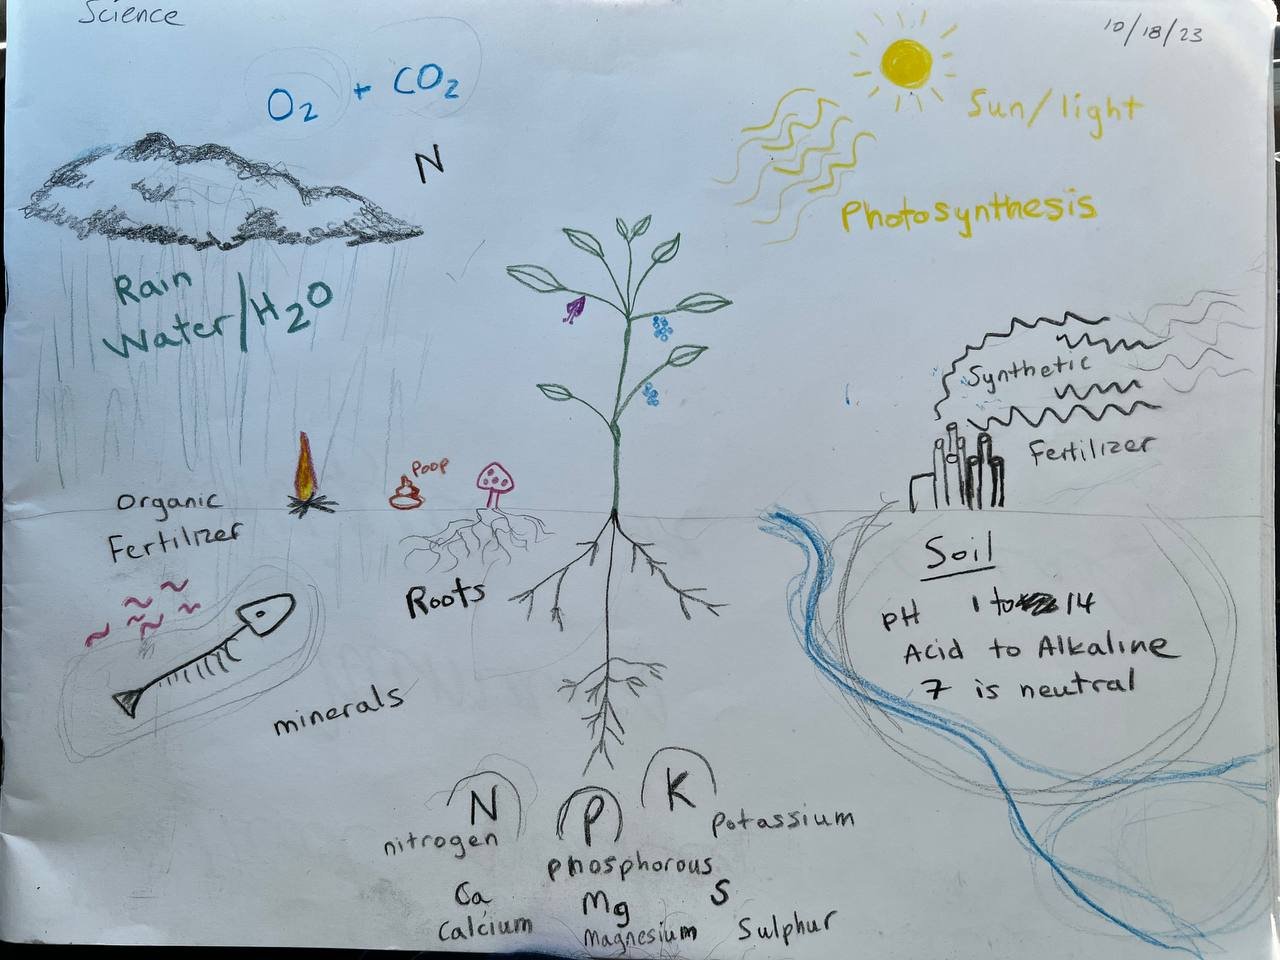 Science
10/18/23
O2 + CO2
N
Sun/light
Photosynthesis
Rain
Water/H2O
Synthetic
Fertilizer
Poop
Organic
Fertilizer
Roots
minerals
Soil
pH 1 to 14
Acid to Alkaline
7 is neutral
N
nitrogen
P
phosphorous
K
potassium
Ca
Calcium
Mg
Magnesium
S
Sulphur